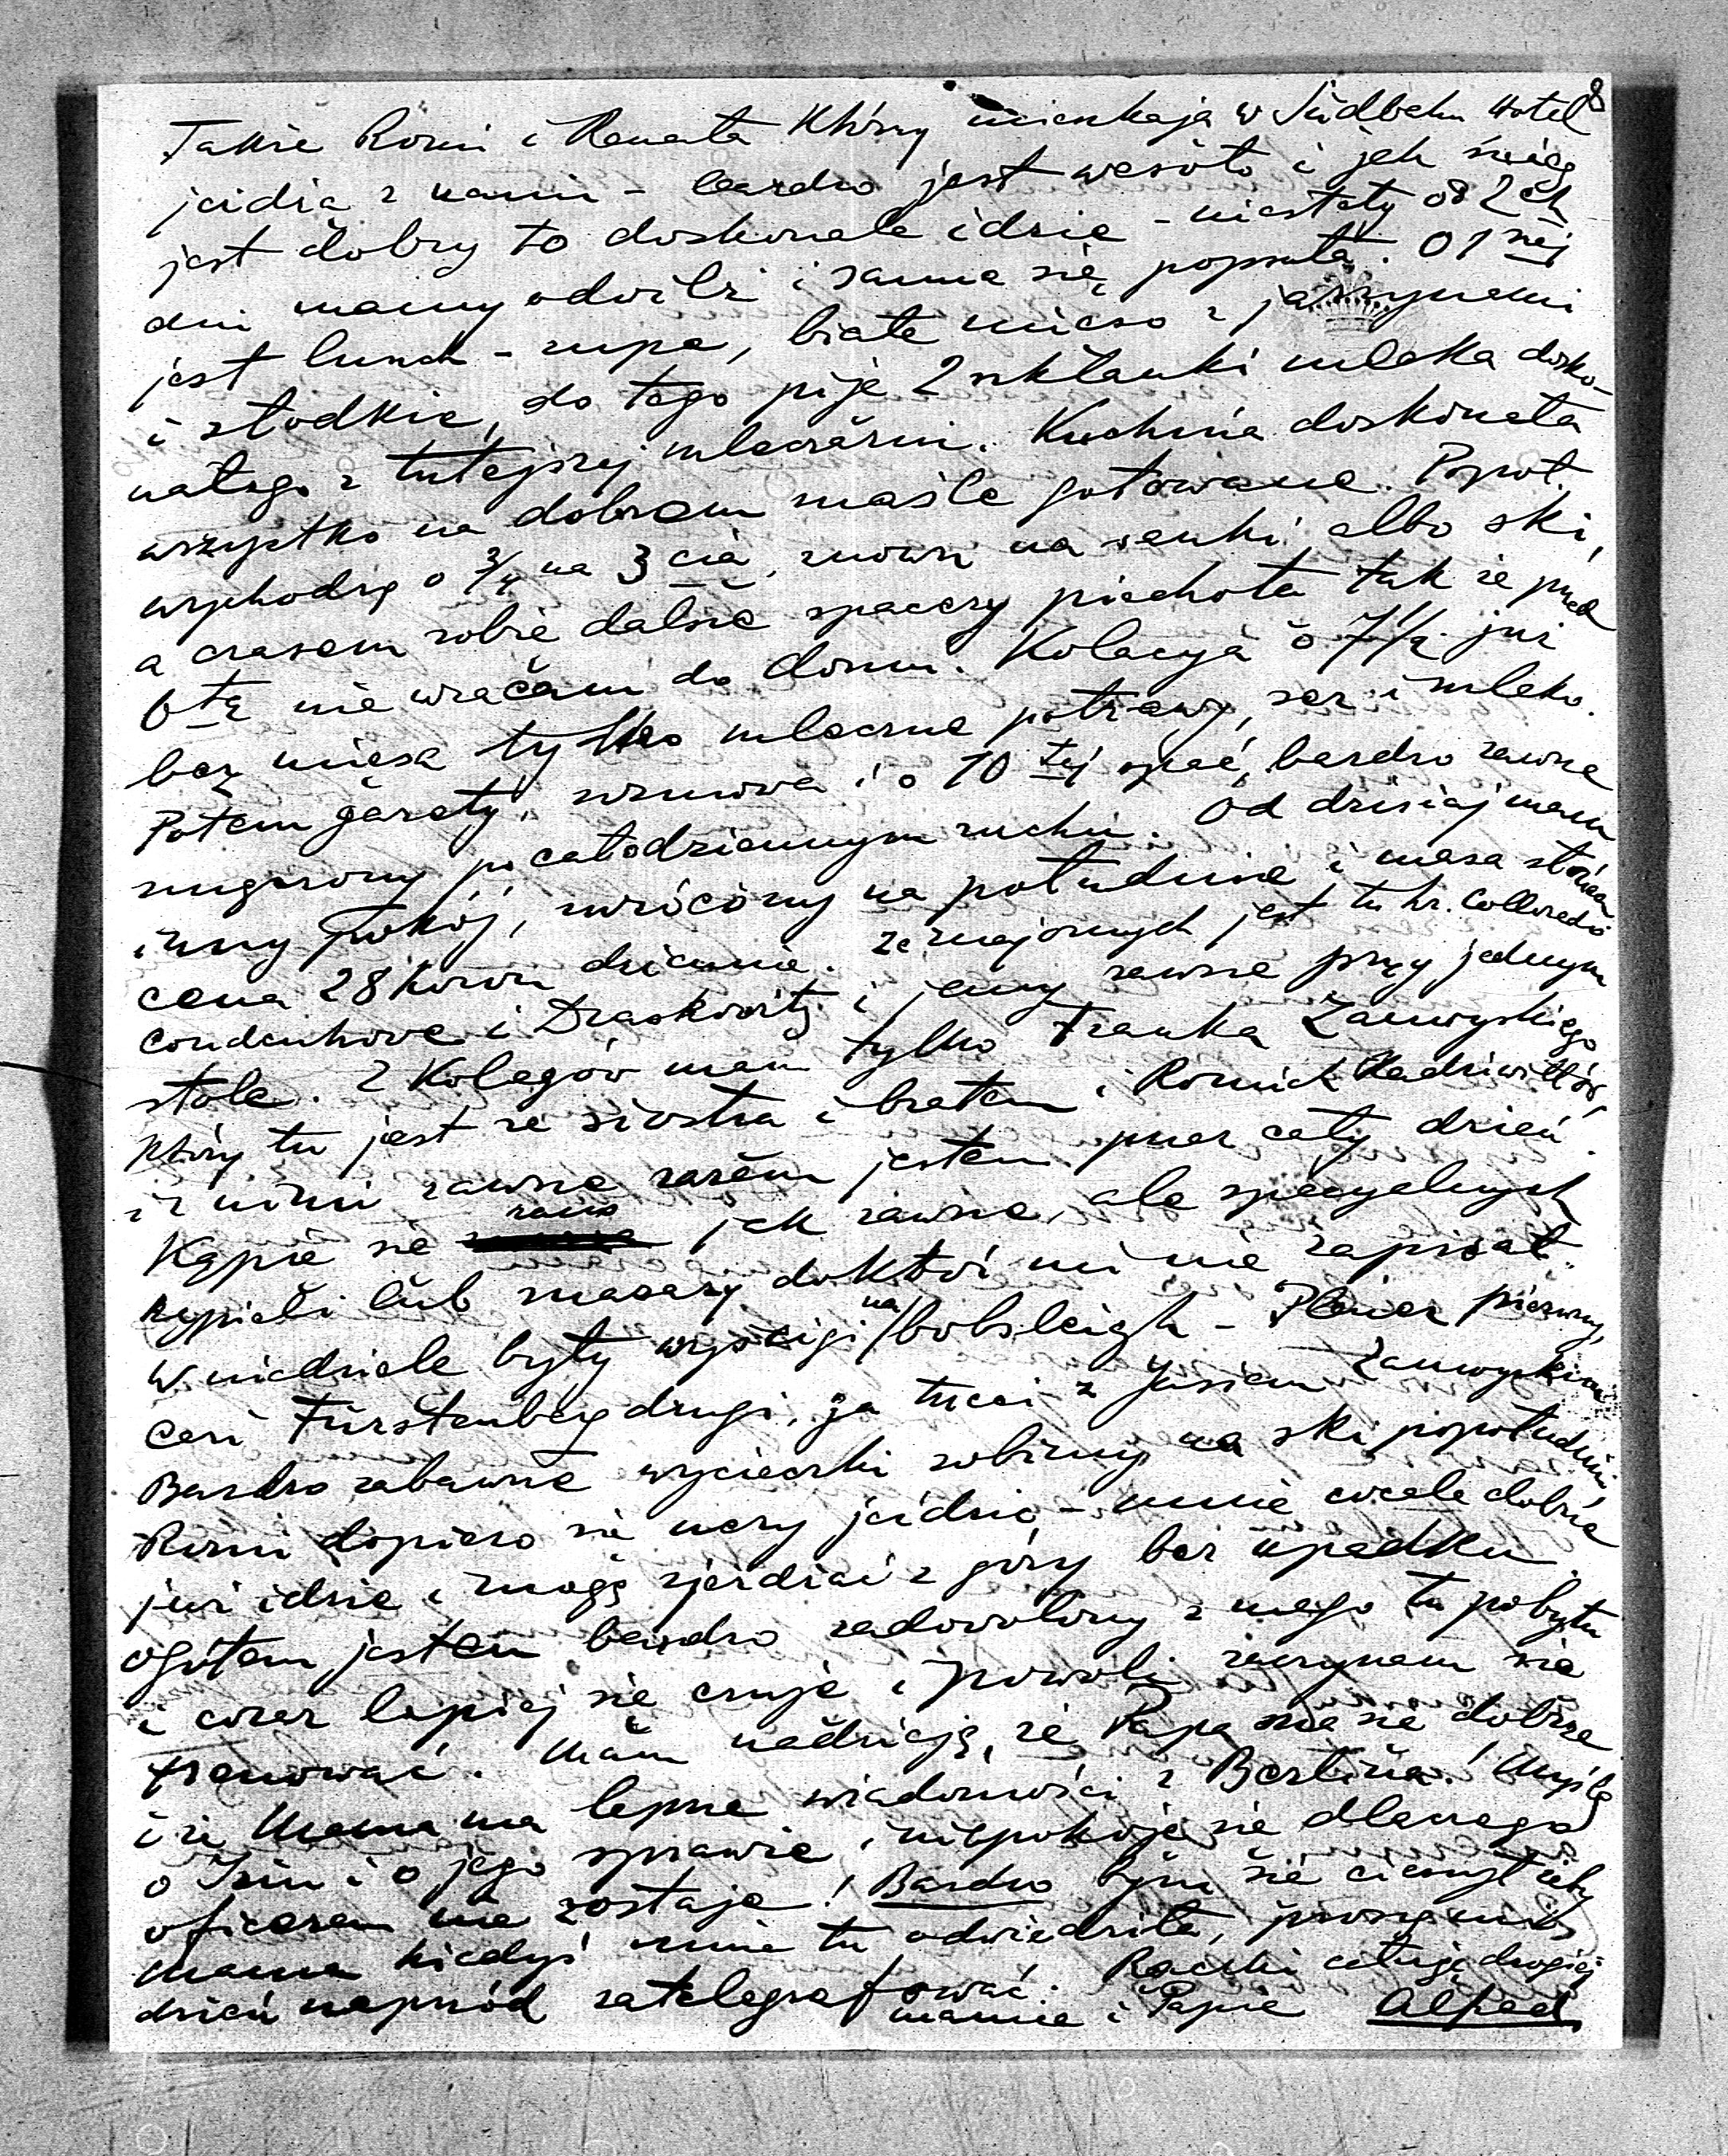 8
Także Romi i Renata którzy mieszkają w Südbahn Hotel
jeżdżą z nami – bardzo jest wesoło i jak śnieg
jest dobry to doskonale idzie – niestety od 2ch
dni mamy odwilż i sanna się popsuła. O 1nej
jest lunch – zupa, białe mięso z jarzynami
i słodkie, do tego piję 2 szklanki mleka dosko-
nałego z tutejszej mleczarni. Kuchnia doskonała
wszystko na dobrem maśle gotowane. Popoł.
wychodzę o 3/4 na 3cią, znowu na sanki albo ski,
a czasem robię dalsze spacery piechotą tak że przed
6tą nie wracam do domu. Kolacya o 7 1/2 już
bez mięsa tylko mleczne potrawy, ser i mleko.
Potem gazety, rozmowa i o 10tej spać, bardzo zawsze
zmęczony po całodziennym ruchu. Od dzisiaj mam
inny pokój, zwrócony na południe i masa słońca
cena 28 koron dziennie. Ze znajomych jest tu hr. Colloredo
Coudenhove i Draskovits i jemy zawsze przy jednym
stole. Z kolegów mam tylko Franka Zamoyskiego
który tu jest ze siostrą i bratem i Romich Radziwiłłów,
i z nimi zawsze razem jestem przez cały dzień.
Kąpię się rano jak zawsze, ale specyalnych
kąpieli lub masaży doktór mi nie zapisał.
W niedziele były wyścigi na bobsleigh – Plener pierwszy,
Cari Fürstenberg drugi, ja trzeci z Jasiem Zamoyskim
Bardzo zabawne wycieczki robimy na ski popołudniu,
Romi dopiero się uczy jeździć – mnie wcale dobrze
już idzie i mogę zjeżdżać z góry bez upadku.
Ogółem jestem bardzo zadowolony z mego tu pobytu
i coraz lepiej się czuję i powoli zaczynam się
trenować. Mam nadzieję, że Papa ma się dobrze
i że Mama ma lepsze wiadomości z Berlina! Myślę
o Isiu i o jego sprawie i niepokoję się dlaczego
oficerem nie zostaje! Bardzo bym się cieszył żeby
Mama kiedyś mnie tu odwiedziła, proszę mi
dzień naprzód zatelegrafować. Rączki całuję drogiej
Mamie i Papie Alfred